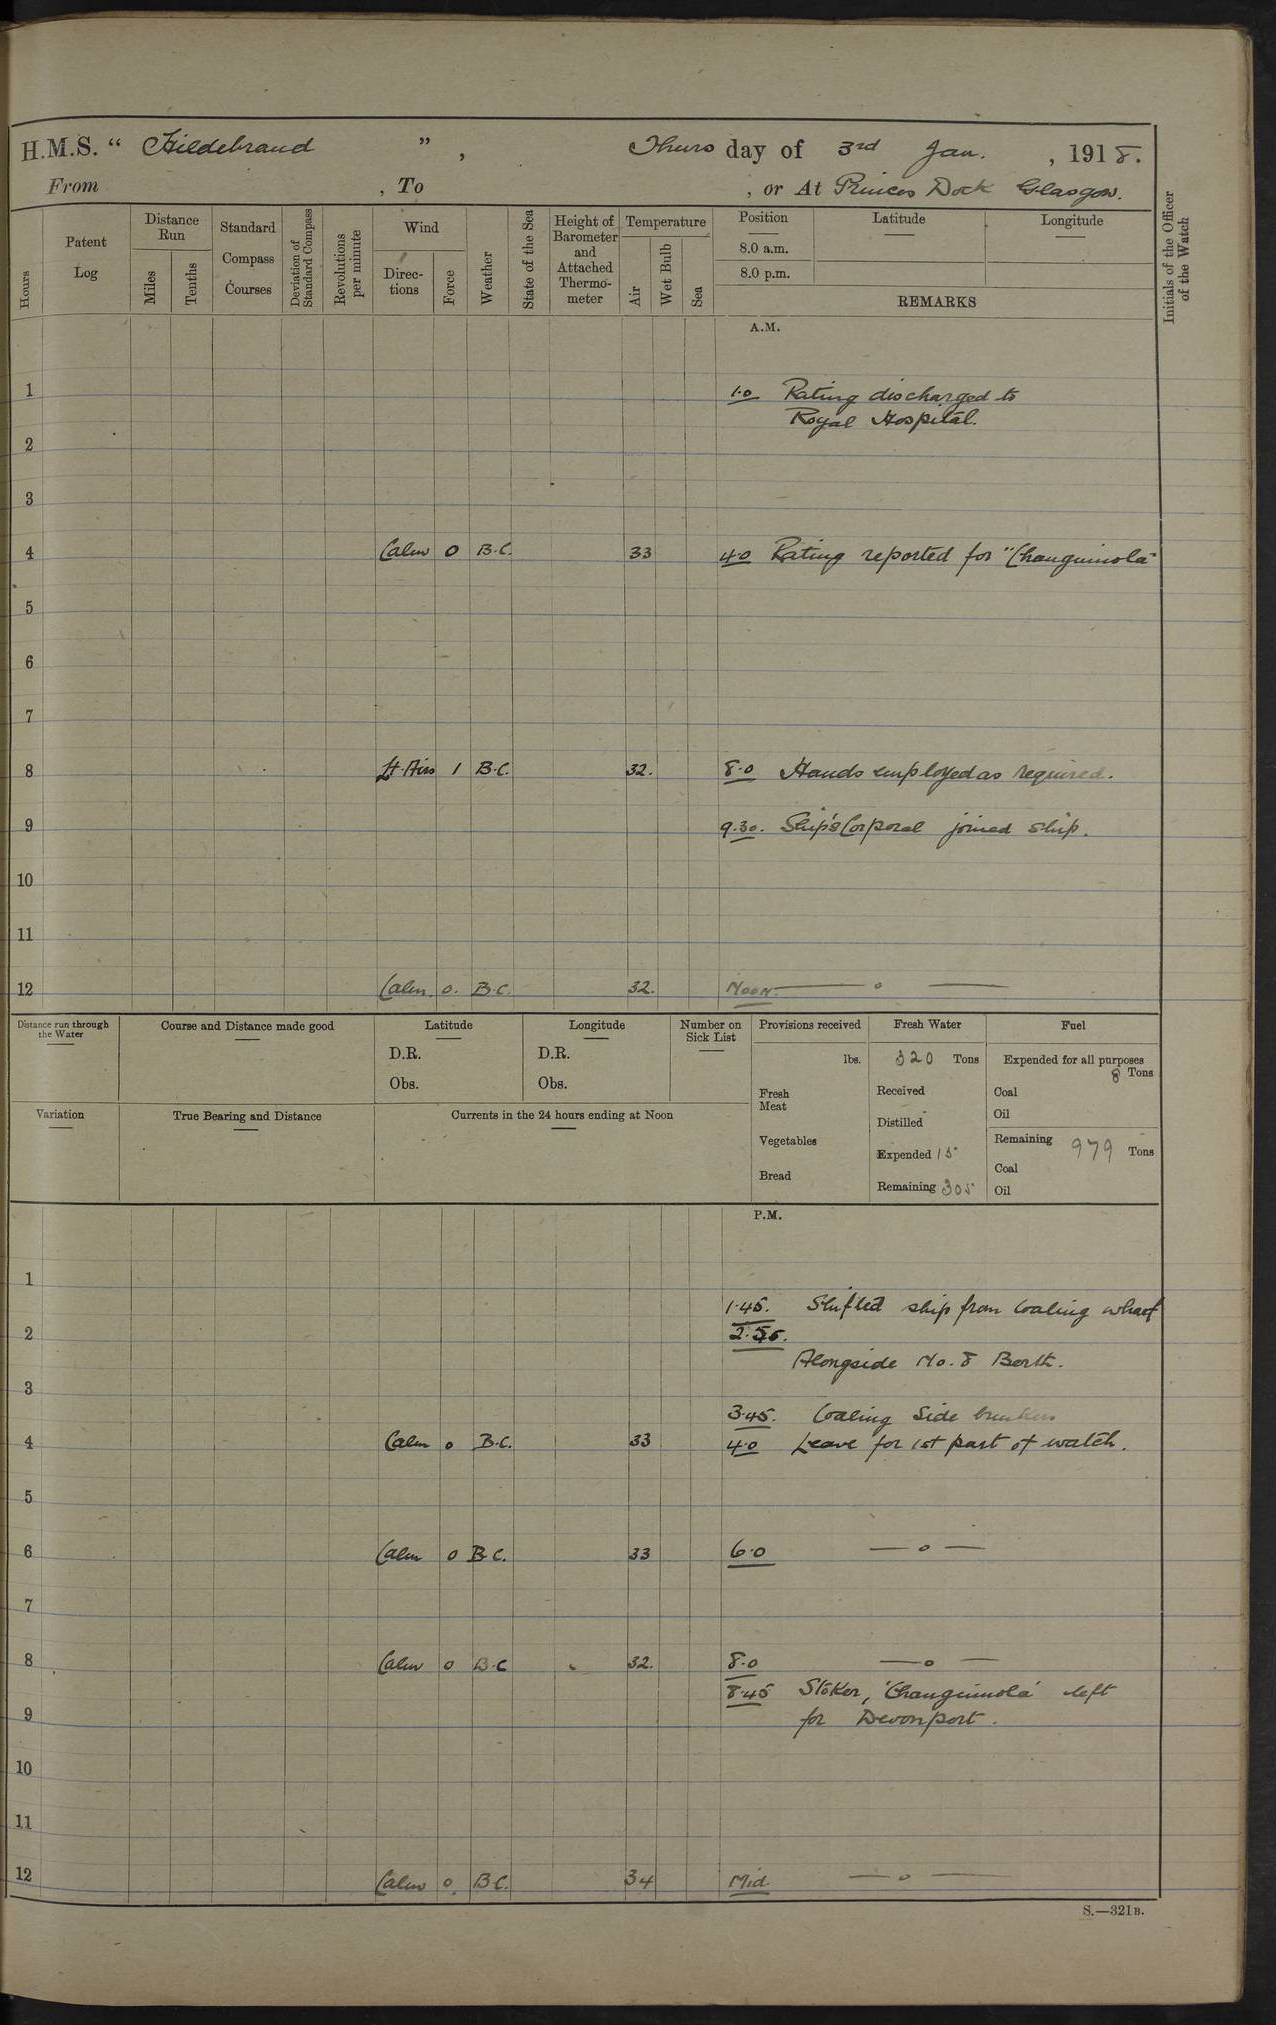 H.M.S. “ Hildebrand ” , Thurs day of 3rd Jan. , 1918.
From , To , or At Princes Dock Glasgow.
Hours
Patent Log
Distance Run
Miles
Tenths
Standard Compass Courses
Deviation of Standard Compass
Revolutions per minute
Wind
Directions
Force
Weather
State of the Sea
Height of Barometer and Attached Thermometer
Temperature
Air
Wet Bulb
Sea
Position
8.0 a.m.
8.0 p.m.
Latitude
Longitude
REMARKS
Initials of the Officer of the Watch
A.M.
1 1.0 Rating discharged to
Royal Hospital.
2
3
4 Calm 0 B.C. 33 4.0 Rating reported for "Changuinola"
5
6
7
8 Lt. Airs 1 B.C. 32. 8.0 Hands employed as required.
9 9.30. Ship's Corporal joined ship.
10
11
12 Calm. 0. B.C. 32. Noon. — o —
Distance run through the Water
Course and Distance made good
Latitude
D.R.
Obs.
Longitude
D.R.
Obs.
Number on Sick List
Provisions received
lbs.
Fresh Meat
Vegetables
Bread
Fresh Water
320 Tons
Received
Distilled
Expended 15
Remaining 305
Fuel
Expended for all purposes
8 Tons
Coal
Oil
Remaining 979 Tons
Coal
Oil
Variation
True Bearing and Distance
Currents in the 24 hours ending at Noon
P.M.
1
1.45. Shifted ship from Coaling wharf
2 2.55.
Alongside No. 8 Berth.
3
3.45. Coaling Side bunkers
4 Calm 0 B.C. 33 4.0 Leave for 1st part of watch.
5
6 Calm 0 B.C. 33 6.0 — o —
7
8 Calm 0 B.C 32. 8.0 — o —
8.45 Stoker, 'Changuinola' left
9 for Devonport.
10
11
12 Calm 0. B.C. 34 Mid. — o —
S.—321B.